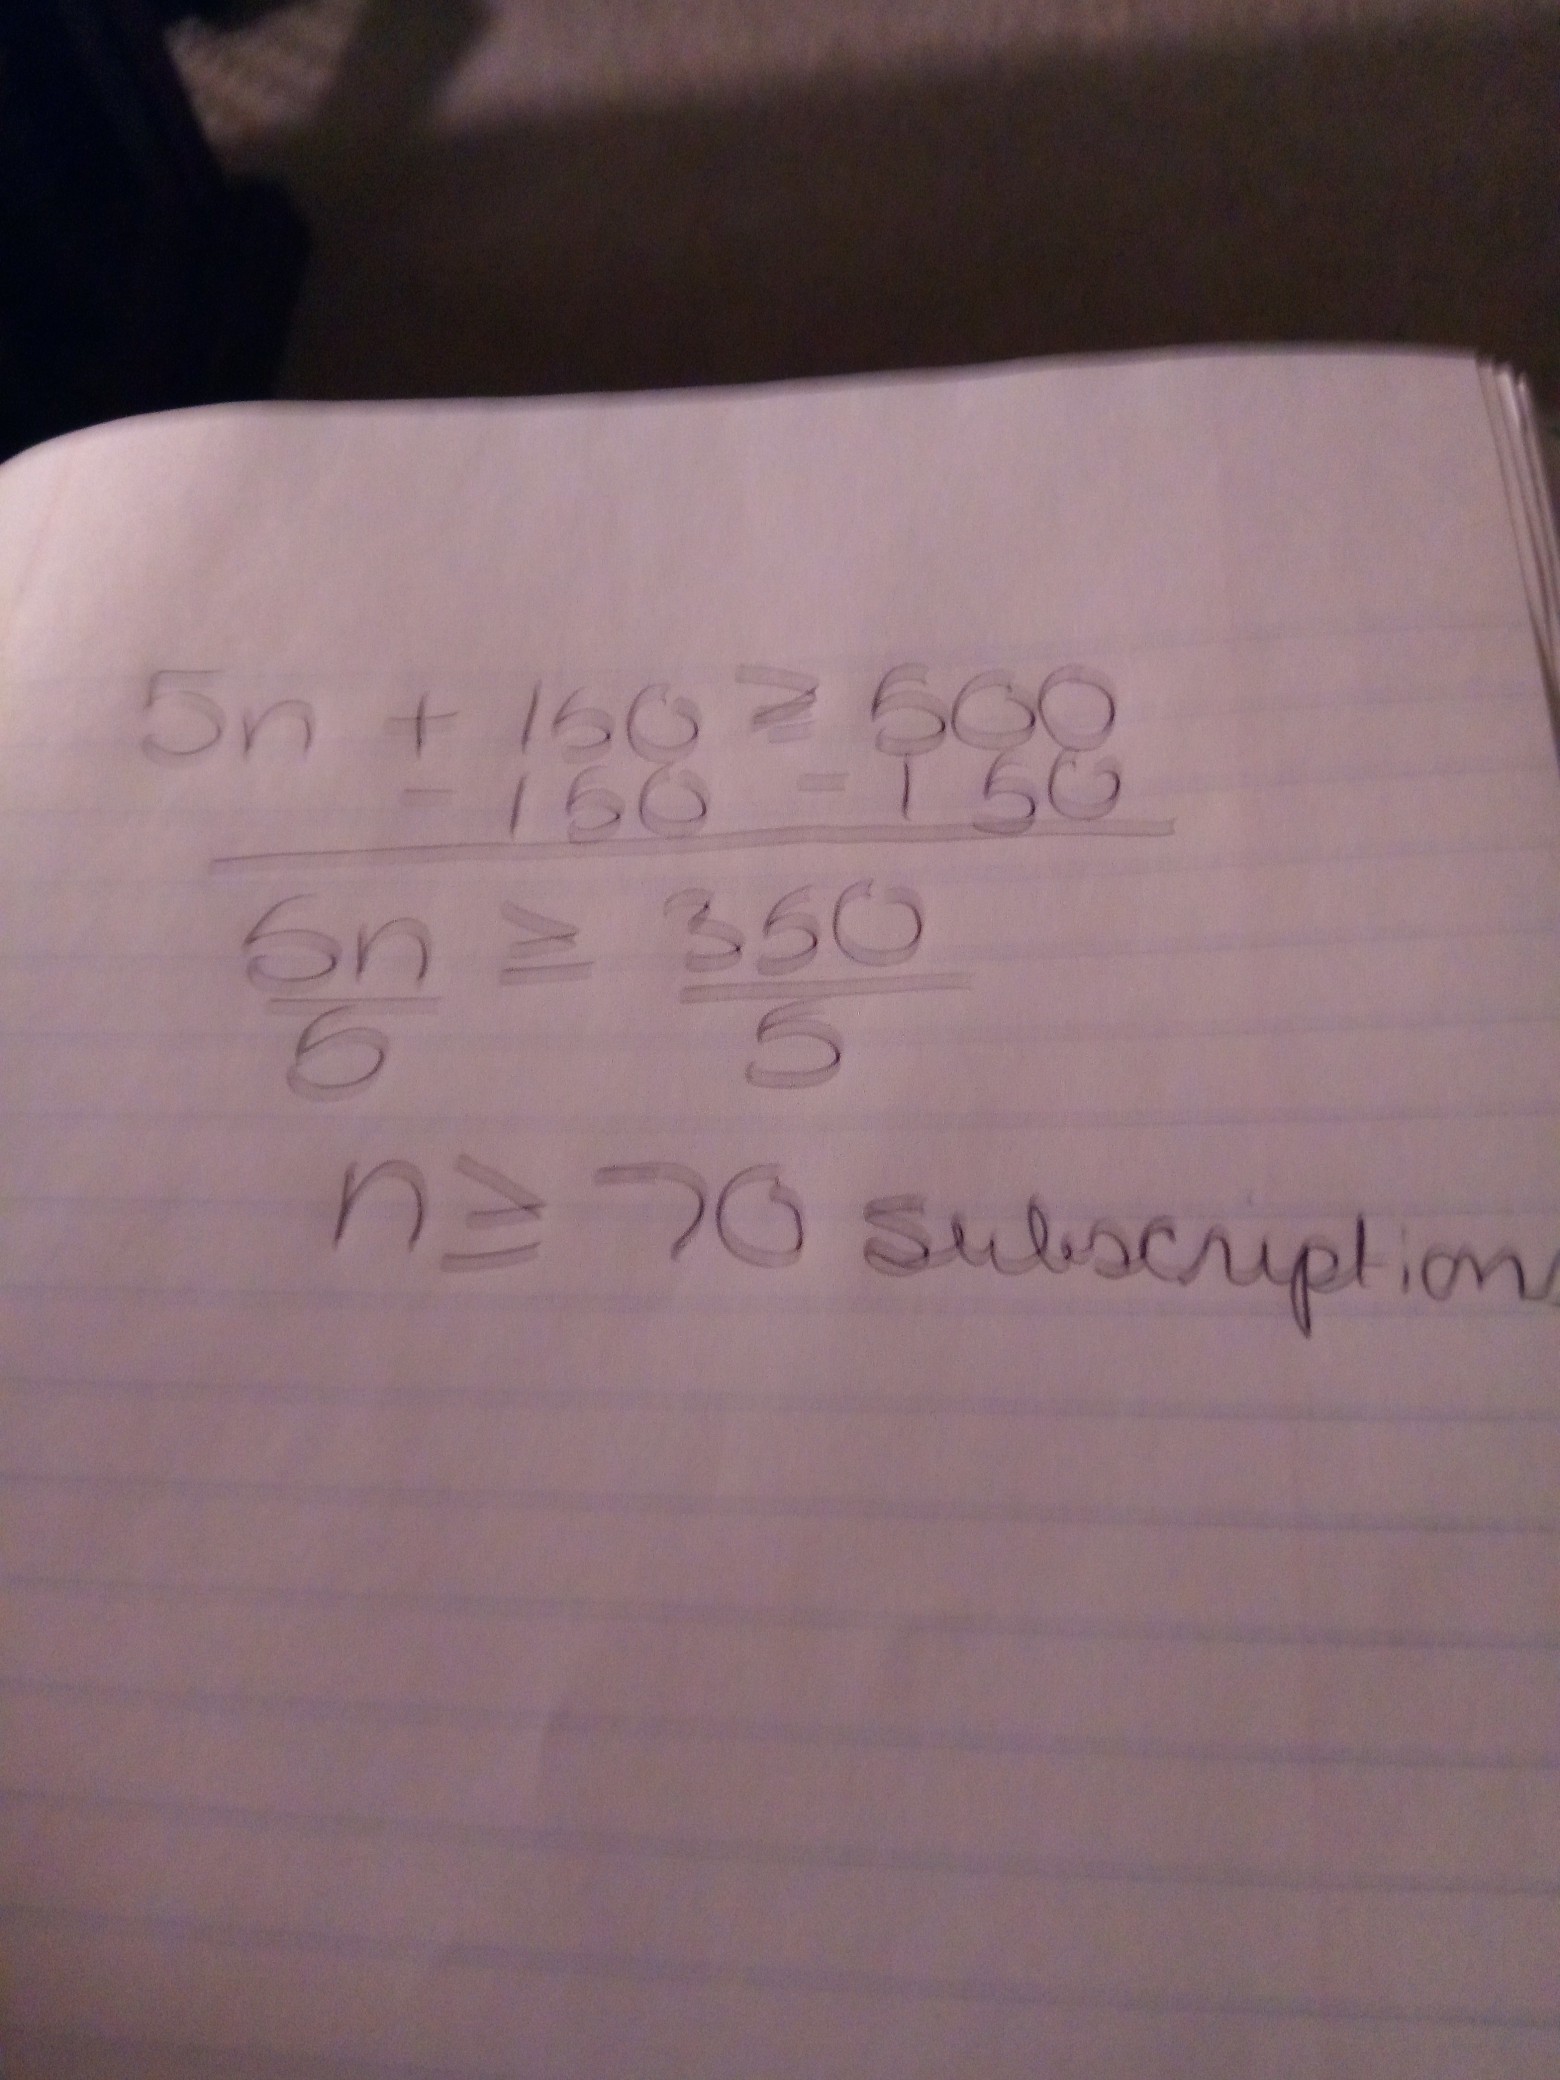 5n + 150 ≥ 500
- 150 - 150
5n ≥ 350
5 5
n ≥ 70 subscriptions